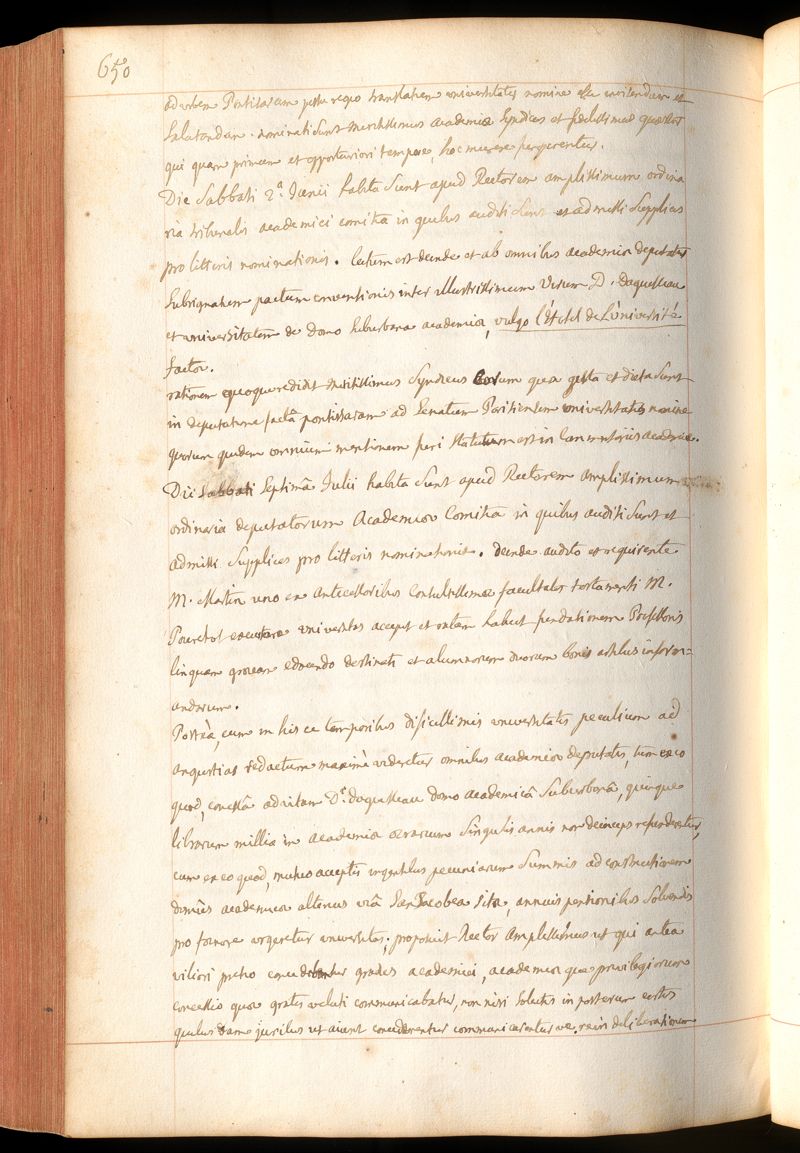 650
ad urbem Pontisaram jussu regio translatum universitatis nomine esse invisendum et
Salutandum. nominati sunt meritissimus academiæ Syndicus et fidelissimus quæstor
qui quam primum et opportuniori tempore, hoc munere fungerentur.
Die Sabbati 2.ª Junii habita sunt apud Rectorem amplissimum ordina
ria tribunalis academici comitia in quibus auditi sunt et admissi Supplices
pro litteris nominationis. lectum est deinde et ab omnibus academiæ deputatis
Subsignatum pactum conventionis inter illustrissimum Virum D. Daguesseau
et universitatem de domo suburbana academiæ, vulgo l'Hotel de L'université
factæ.
rationem quoque reddidit meritissimus Syndicus eorum quæ gesta et dicta sunt
in deputatione factâ pontissaram ad Senatum Parisiensem universitatis nomine
quorum quidem omnium mentionem fieri statutum est in Commentariis academiæ.
Die Sabbati Septimâ Julii habita sunt apud Rectorem amplissimum
ordinaria deputatorum Academiæ Comitia in quibus auditi sunt et
admissi Supplices pro litteris nominationis. deinde audito et requirente
M. Martin uno ex Antecessoribus Consultissimæ facultatis testamenti M.
Pourchot executore universitas accepit et ratam habuit fundationem Professoris
linguam græcam edocendo destinati et alumnorum duorum bonis artibus inform=
andorum.
Postea, cum in his ce temporibus difficillimis universitatis peculium ad
angustias redactum maximè videretur omnibus academiæ deputatis, tum ex eo
quod, concessâ ad vitam D.º daguesseau domo academicâ Suburbanâ, quinque
librarum millia in academiæ ærarium Singulis annis non deinceps refunderentur,
cum ex eo quod, mutuo acceptis ingentibus pecuniarum Summis ad constructionem
domûs academicæ alterius viâ San Jacobea sitæ, annuis pentionibus Solvendis
pro fœnore urgeretur universitas; proposuit Rector Amplissimus ut qui antea
viliori pretio concedebantur gradus academici, academiæ que privilegiorum
concessio quæ gratis veluti communicabatur, non nisi Solutis in posterum certis
quibusdam juribus ut aiunt concederentur communicarentur ve. rem deliberationem